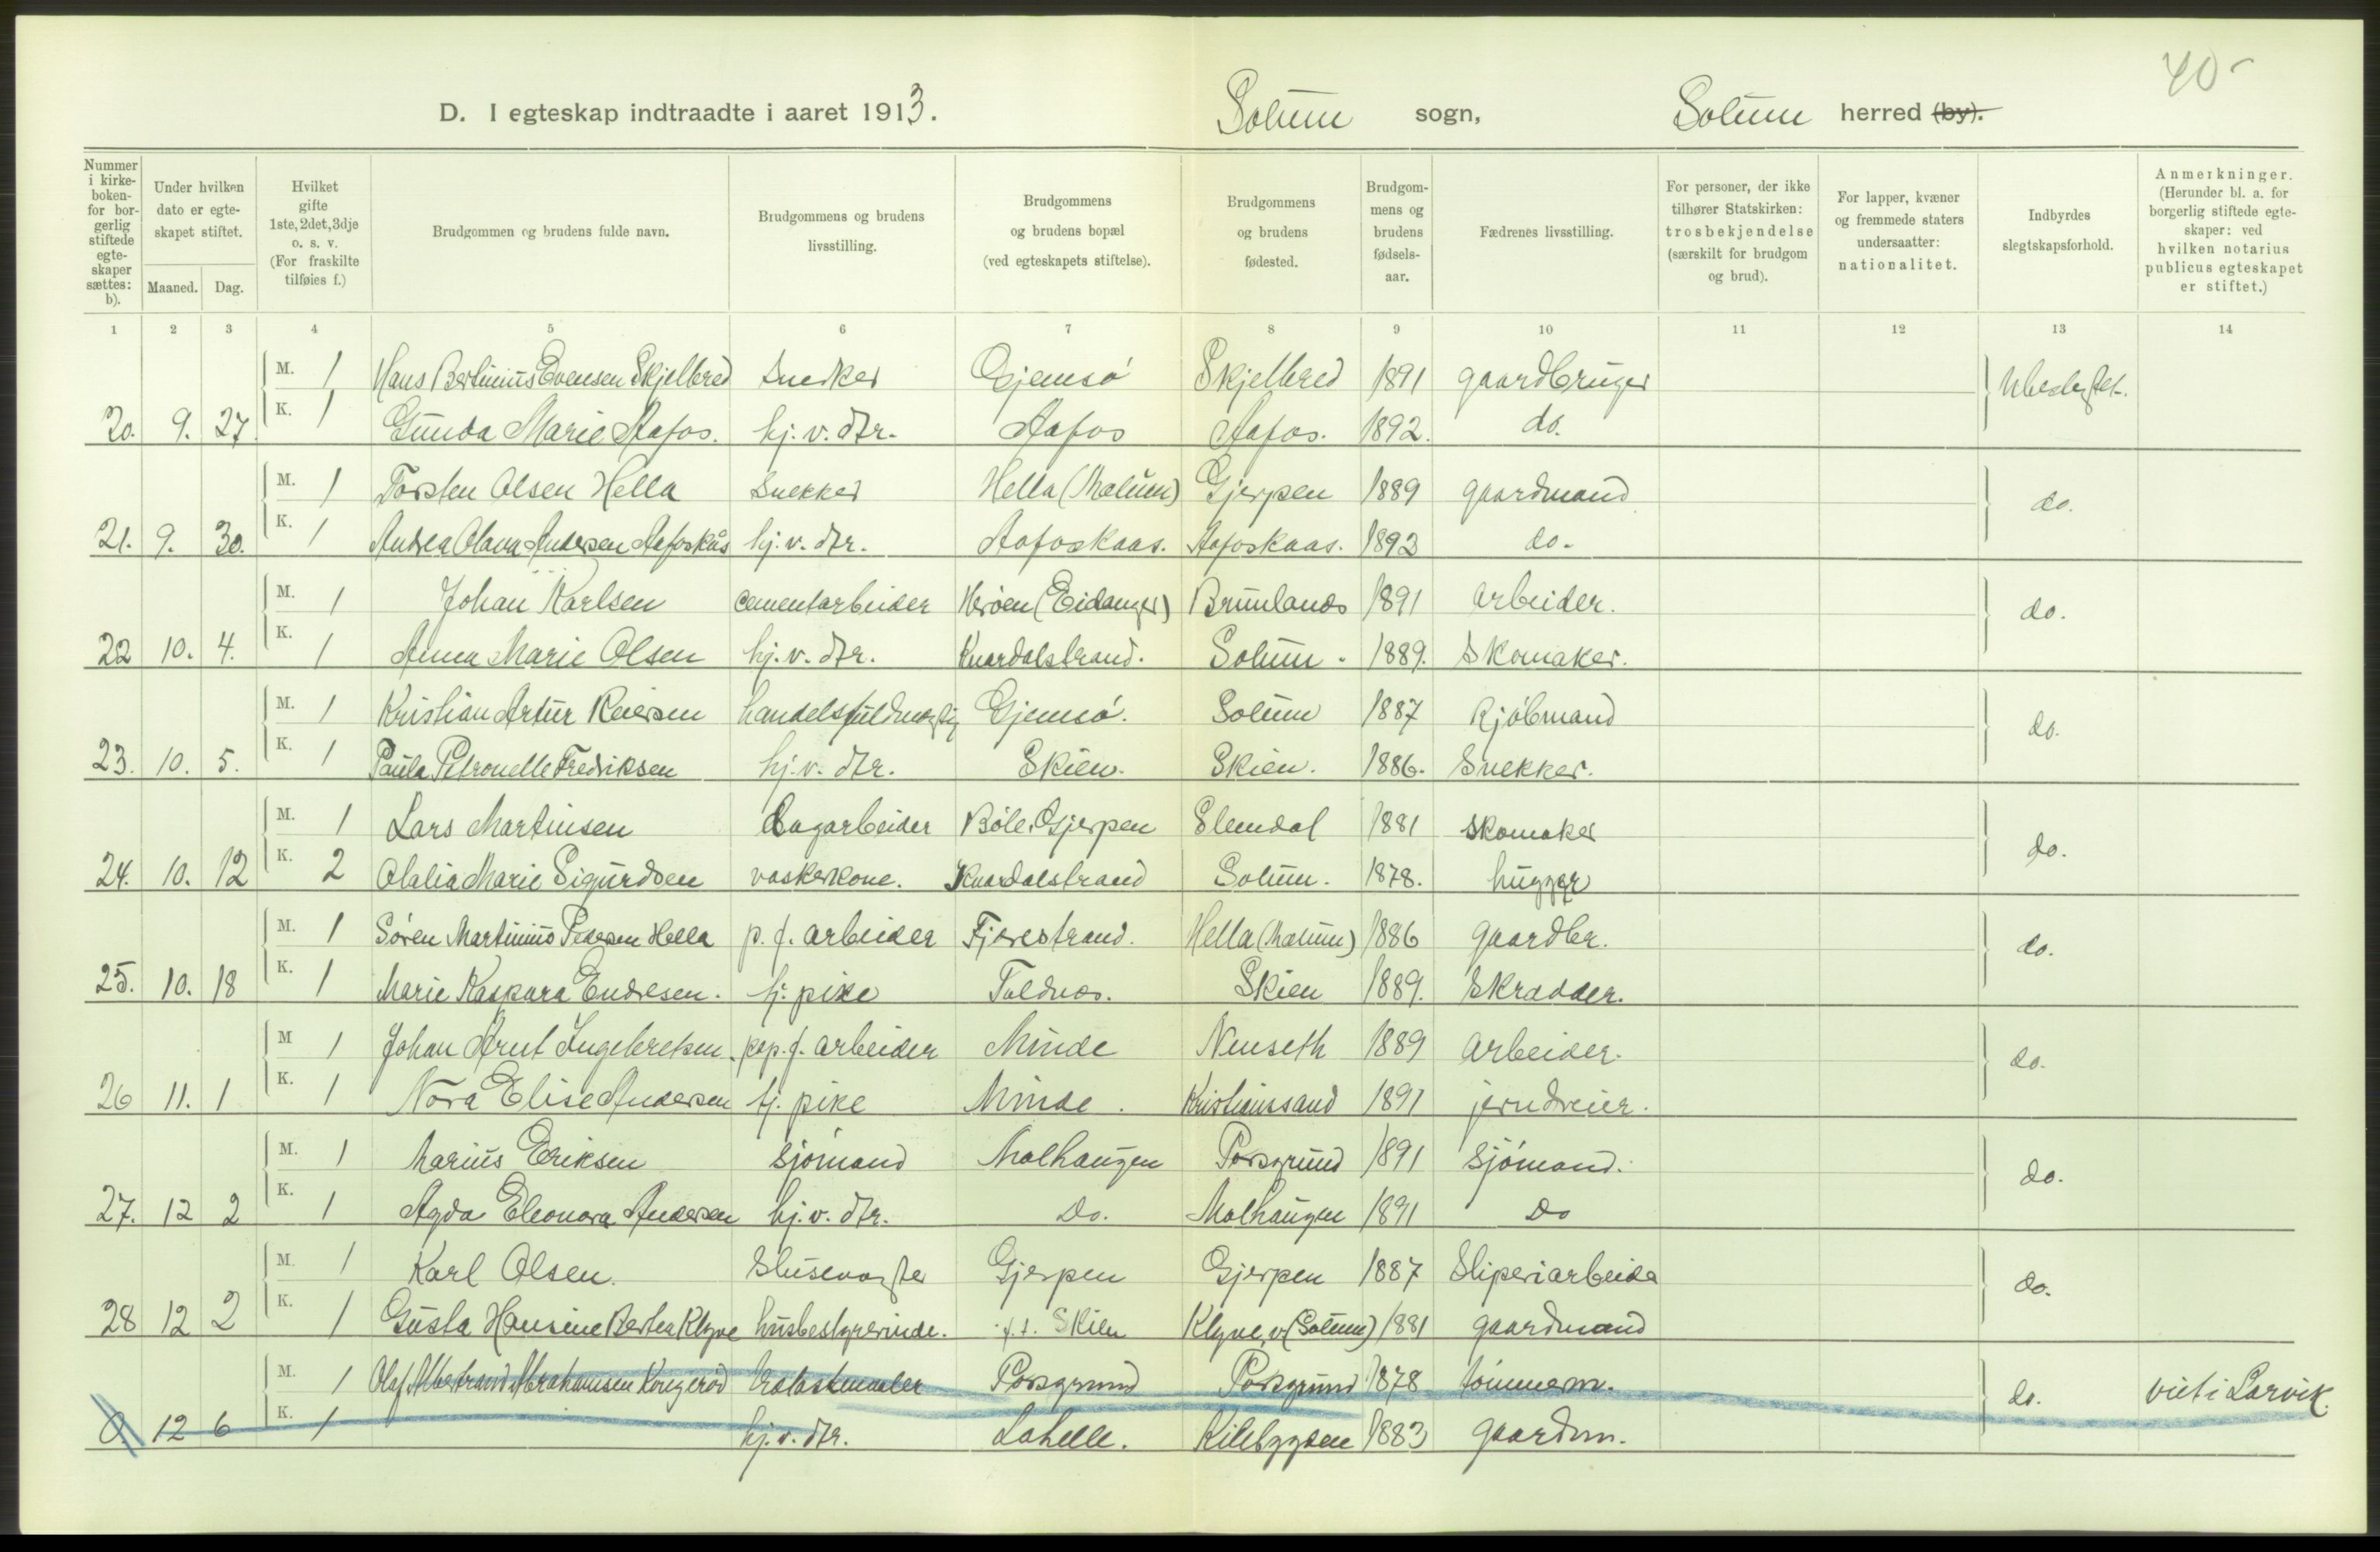 40-
D. I egteskap indtraadte i aaret 1913. Solum sogn, Solum herred (by).
Nummer i kirkeboken- for borgerlig stiftede egteskaper sættes: b).
Under hvilken dato er egteskapet stiftet.
Maaned. Dag.
Hvilket gifte 1ste, 2det, 3dje o. s. v. (For fraskilte tilføies f.)
Brudgommen og brudens fulde navn.
Brudgommens og brudens livsstilling.
Brudgommens og brudens bopæl (ved egteskapets stiftelse).
Brudgommens og brudens fødested.
Brudgommens og brudens fødselsaar.
Fædrenes livsstilling.
For personer, der ikke tilhører Statskirken: trosbekjendelse (særskilt for brudgom og brud).
For lapper, kvæner og fremmede staters undersaatter: nationalitet.
Indbyrdes slegtskapsforhold.
Anmerkninger. (Herunder bl. a. for borgerlig stiftede egteskaper: ved hvilken notarius publicus egteskapet er stiftet.)
1 2 3 4 5 6 7 8 9 10 11 12 13 14
M. 1 Hans Bertinius Evensen Skjelbred Snedker Gjemsø Skjelbred 1891 gaardbruger Ubeslegtet.
20. 9. 27 K. 1 Gunda Marie Aafos. hj. v. dtr. Aafos Aafos. 1892. do.
M. 1 Torsten Olsen Hella Snekker Hella (Mælum) Gjerpen 1889 gaardmand do.
21. 9. 30. K. 1 Andrea Olava Andersen Aafoskås hj. v. dtr. Aafoskaas. Aafoskaas. 1893 do.
M. 1 Johan Karlsen cementarbeider Herøen (Eidanger) Brunlanes 1891 arbeider. do.
22 10. 4. K. 1 Anna Marie Olsen hj. v. dtr. Knardalstrand. Solum. 1889. Skomaker.
M. 1 Kristian Artur Reiersen handelsfuldmægtig Gjemsø. Solum 1887 Kjøbmand do.
23. 10. 5. K. 1 Paula Petronelle Fredriksen hj. v. dtr. Skien. Skien. 1886. Snekker.
M. 1 Lars Martinsen Sagarbeider Bøle, Gjerpen Slemdal 1881 Skomaker do.
24. 10. 12 K. 2 Olalia Marie Sigurdsen vaskerkone. Knardalstrand Solum. 1878. hugger
M. 1 Søren Martinius Pedersen Hella p. f. arbeider Fjærestrand. Hella (Mælum) 1886 gaardbr. do.
25. 10. 18 K. 1 Marie Kaspara Endresen. tj. pike Toldnæs. Skien 1889. Skrædder.
M 1 Johan Arnt Ingebretsen. pap. f. arbeider Minde Nenseth 1889 arbeider. do.
26 11. 1 K. 1 Nora Elise Andersen tj. pike Minde. Kristianssand 1891 jerndreier.
M. 1 Marius Eriksen sjømand Molhaugen Porsgrund 1891 sjømand. do.
27. 12 2 K. 1 Agda Eleonora Andersen hj. v. dtr. Do. Molhaugen 1891 Do
M. 1 Karl Olsen. Slusevogter Gjerpen Gjerpen 1887 Sliperiarbeider do.
28 12 2 K. 1 Gusta Hansine Bertea Klyve husbestyrerinde. f. t. Skien Klyve, v (Solum) 1881 gaardmand
M. 1 Olaf Abrahamsen Porsgrund Porsgrund 1878 tømmerm. do. viet i Larvik.
0. 12 6 K. 1 hj. v. dtr. Lahelle. Kilebygden 1883 gaardm.